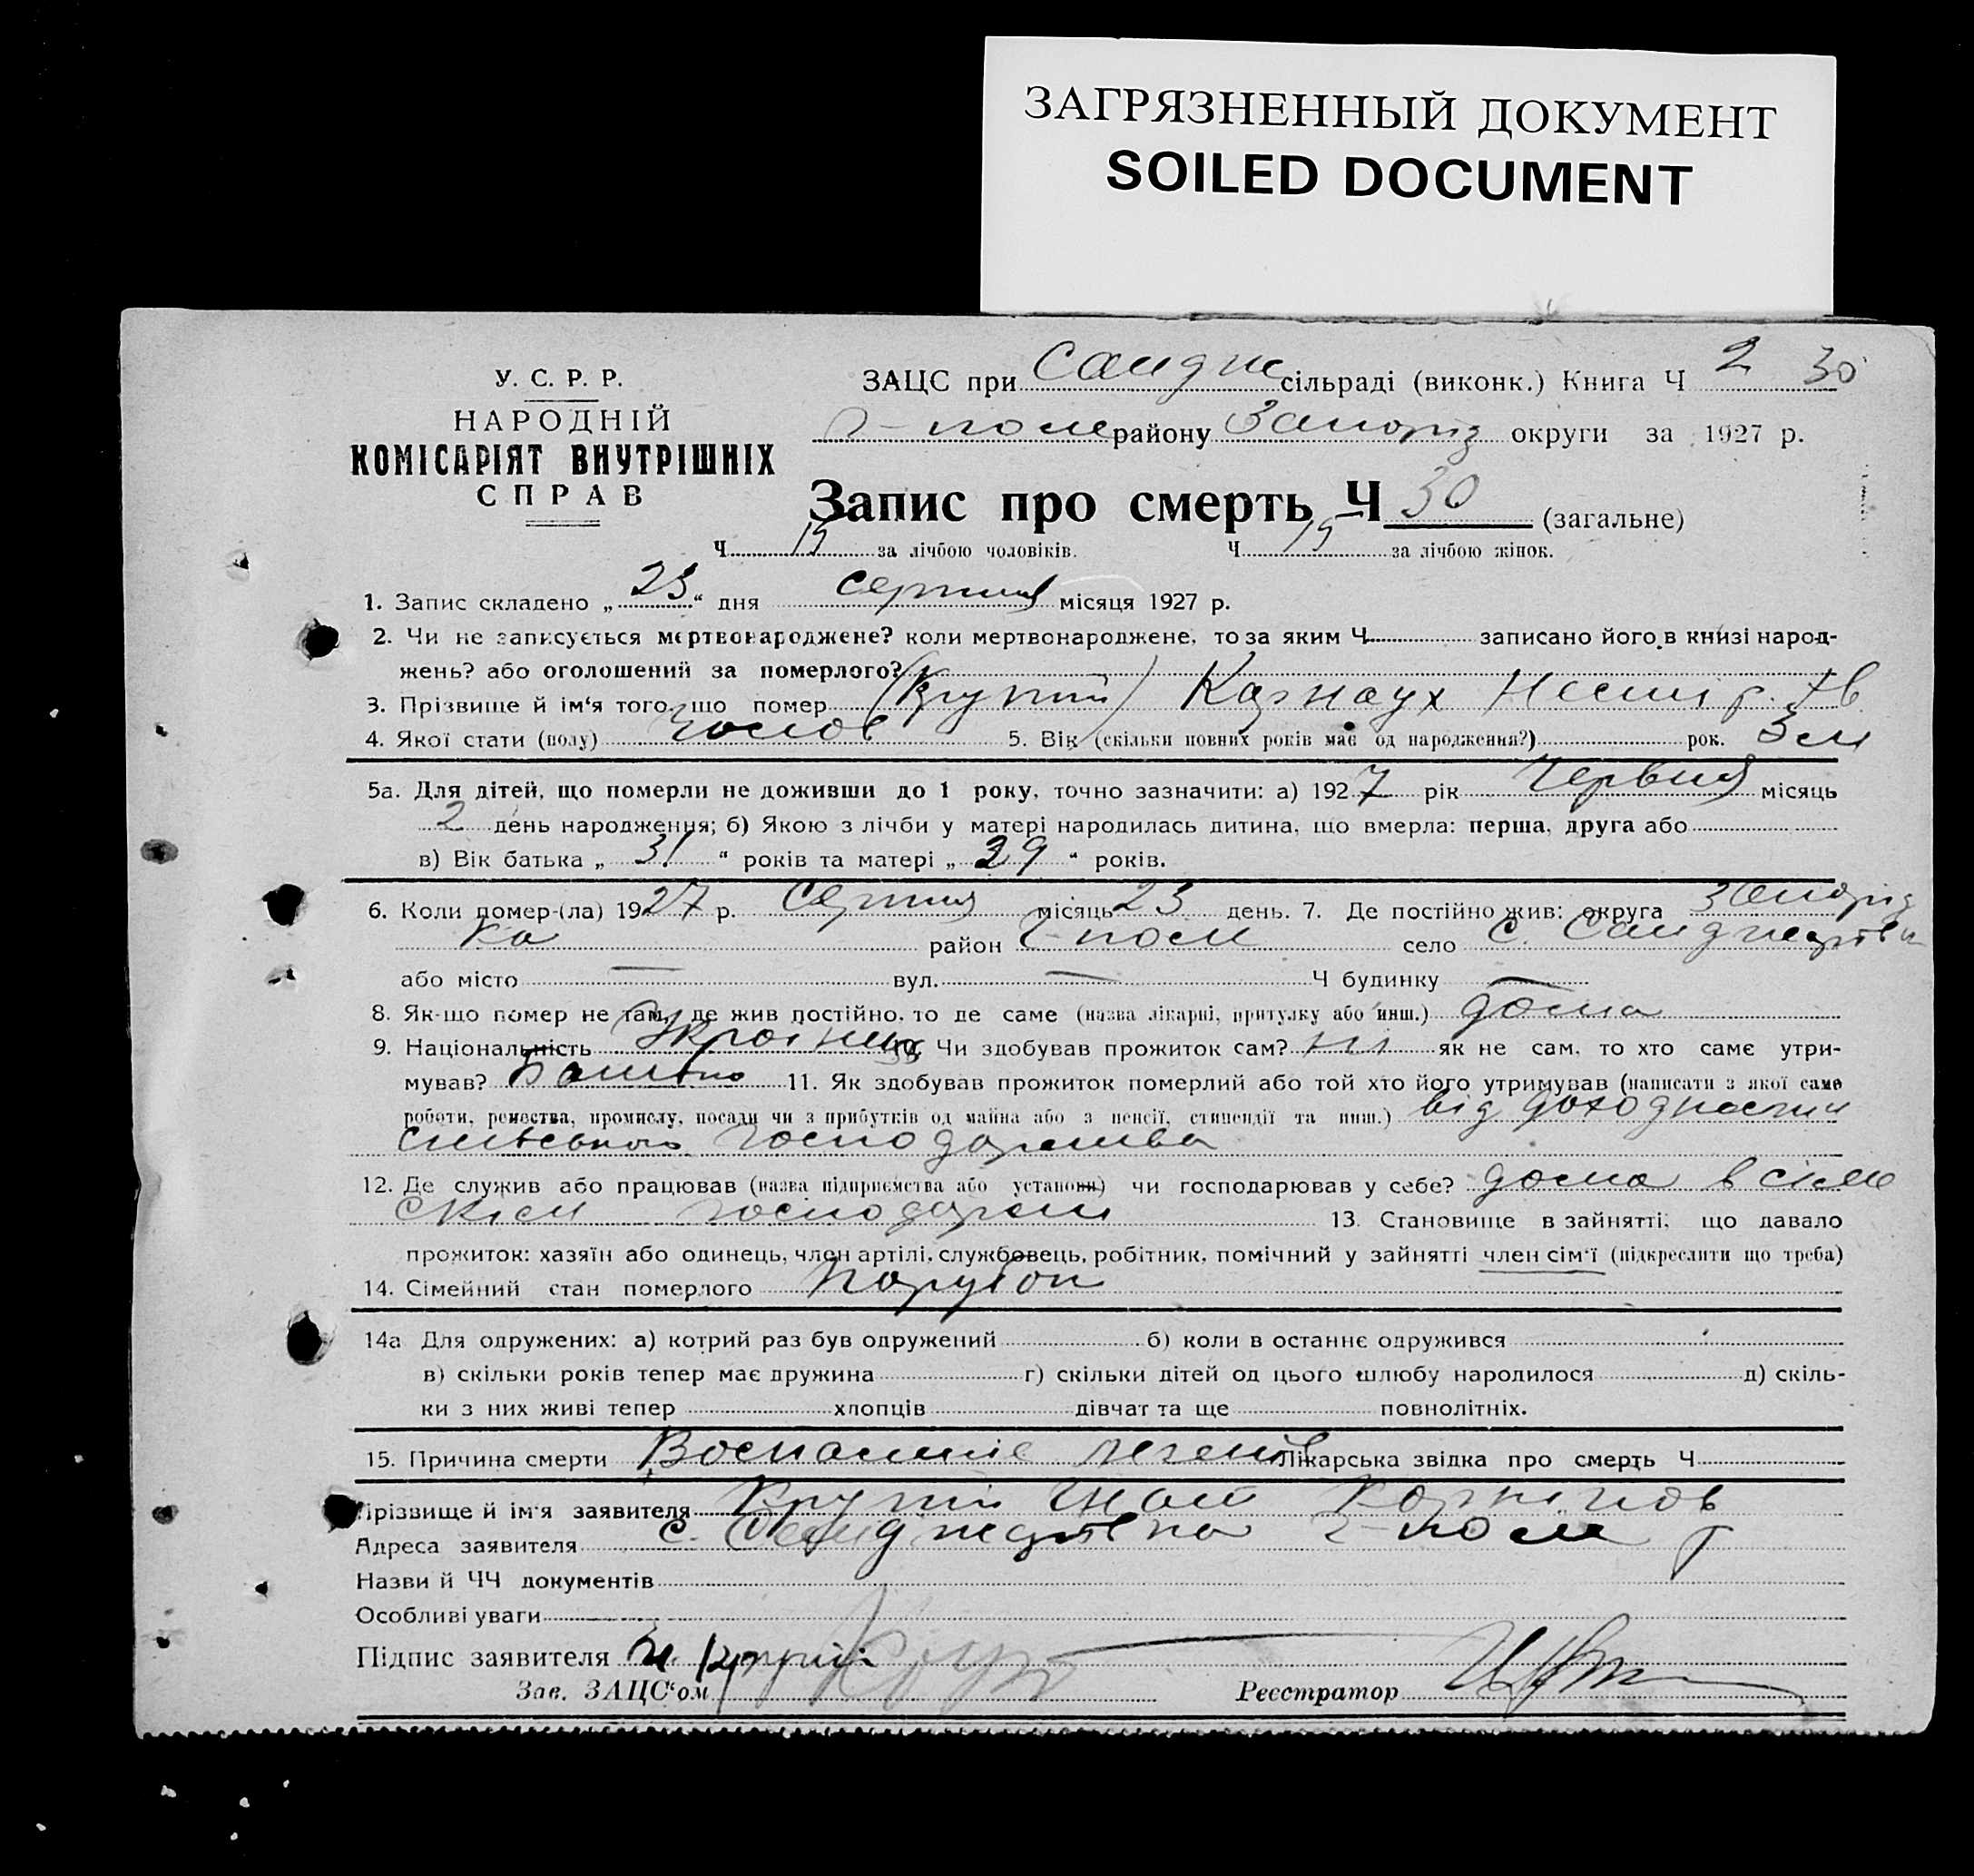 ЗАГРЯЗНЕННЫЙ ДОКУМЕНТ
SOILED DOCUMENT
У. С. Р. Р.
НАРОДНІЙ
КОМІСАРІЯТ ВНУТРІШНІХ
СПРАВ
ЗАЦС при Сандж сільраді (виконк.) Книга Ч 2 30
Г-поле району Запоріз округи за 1927 р.
Запис про смерть Ч 30 (загальне)
Ч 15 за лічбою чоловіків. Ч 15 за лічбою жінок.
1. Запис складено „ 23 “ дня серпня місяця 1927 р.
2. Чи не записується мертвонароджене? коли мертвонароджене, то за яким Ч записано його в книзі народ-
жень? або оголошений за померлого?
3. Прізвище й ім'я того, що помер (Крупій) Карнаух
4. Якої стати (полу) чолов 5. Вік (скільки повних років має од народження?) рок. 3 м
5а. Для дітей, що померли не доживши до 1 року, точно зазначити: а) 1927 рік Червня місяць
2 день народження; б) Якою з лічби у матері народилась дитина, що вмерла: перша, друга або
в) Вік батька „ 31 “ років та матері „ 29 “ років.
6. Коли помер-(ла) 1927 р. Серпня місяць 23 день. 7. Де постійно жив: округа Запоріз
ка район Г-поле село с. Санджарівка
або місто — вул. — Ч будинку —
8. Як-що помер не там, де жив постійно, то де саме (назва лікарні, притулку або инш.) дома
9. Національність 10. Чи здобував прожиток сам? ні як не сам, то хто саме утри-
мував? Батько 11. Як здобував прожиток померлий або той хто його утримував (написати з якої саме
роботи, ремества, промислу, посади чи з прибутків од майна або з пенсії, стипендії та инш.) від доходности
сільського господарства
12. Де служив або працював (назва підприємства або установи) чи господарював у себе? дома в сільс
ськім господарстві 13. Становище в зайнятті, що давало
прожиток: хазяїн або одинець, член артілі, службовець, робітник, помічний у зайнятті член сім'ї (підкреслити що треба)
14. Сімейний стан померлого парубок
14а Для одружених: а) котрий раз був одружений б) коли в останнє одружився
в) скільки років тепер має дружина г) скільки дітей од цього шлюбу народилося д) скіль-
ки з них живі тепер хлопців дівчат та ще повнолітніх.
15. Причина смерти Воспаление легенів Лікарська звідка про смерть Ч
Прізвище й ім'я заявителя Крупій Гнат
Адреса заявителя с. Санджарівка Г-поле р
Назви й ЧЧ документів
Особливі уваги
Підпис заявителя Крупій
Зав. ЗАЦС'ом Реєстратор